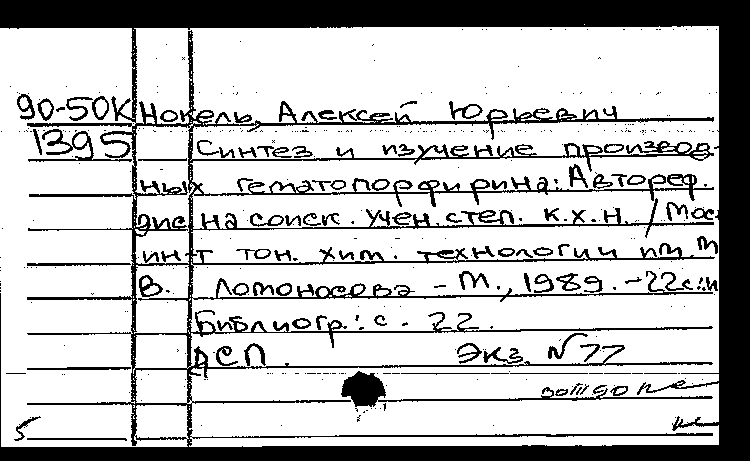 90-50К Нокель, Алексей Юрьевич
1395 Синтез и изучение производ-
ных гематопорфирина: Автореф.
дис на соиск. учен. степ. к.х.н. / Мос
ин-т тон. хим. технологии им. М
В. Ломоносова - М., 1989. - 22с.:и
Библиогр.: с. 22.
ДСП. Экз. N 77
5